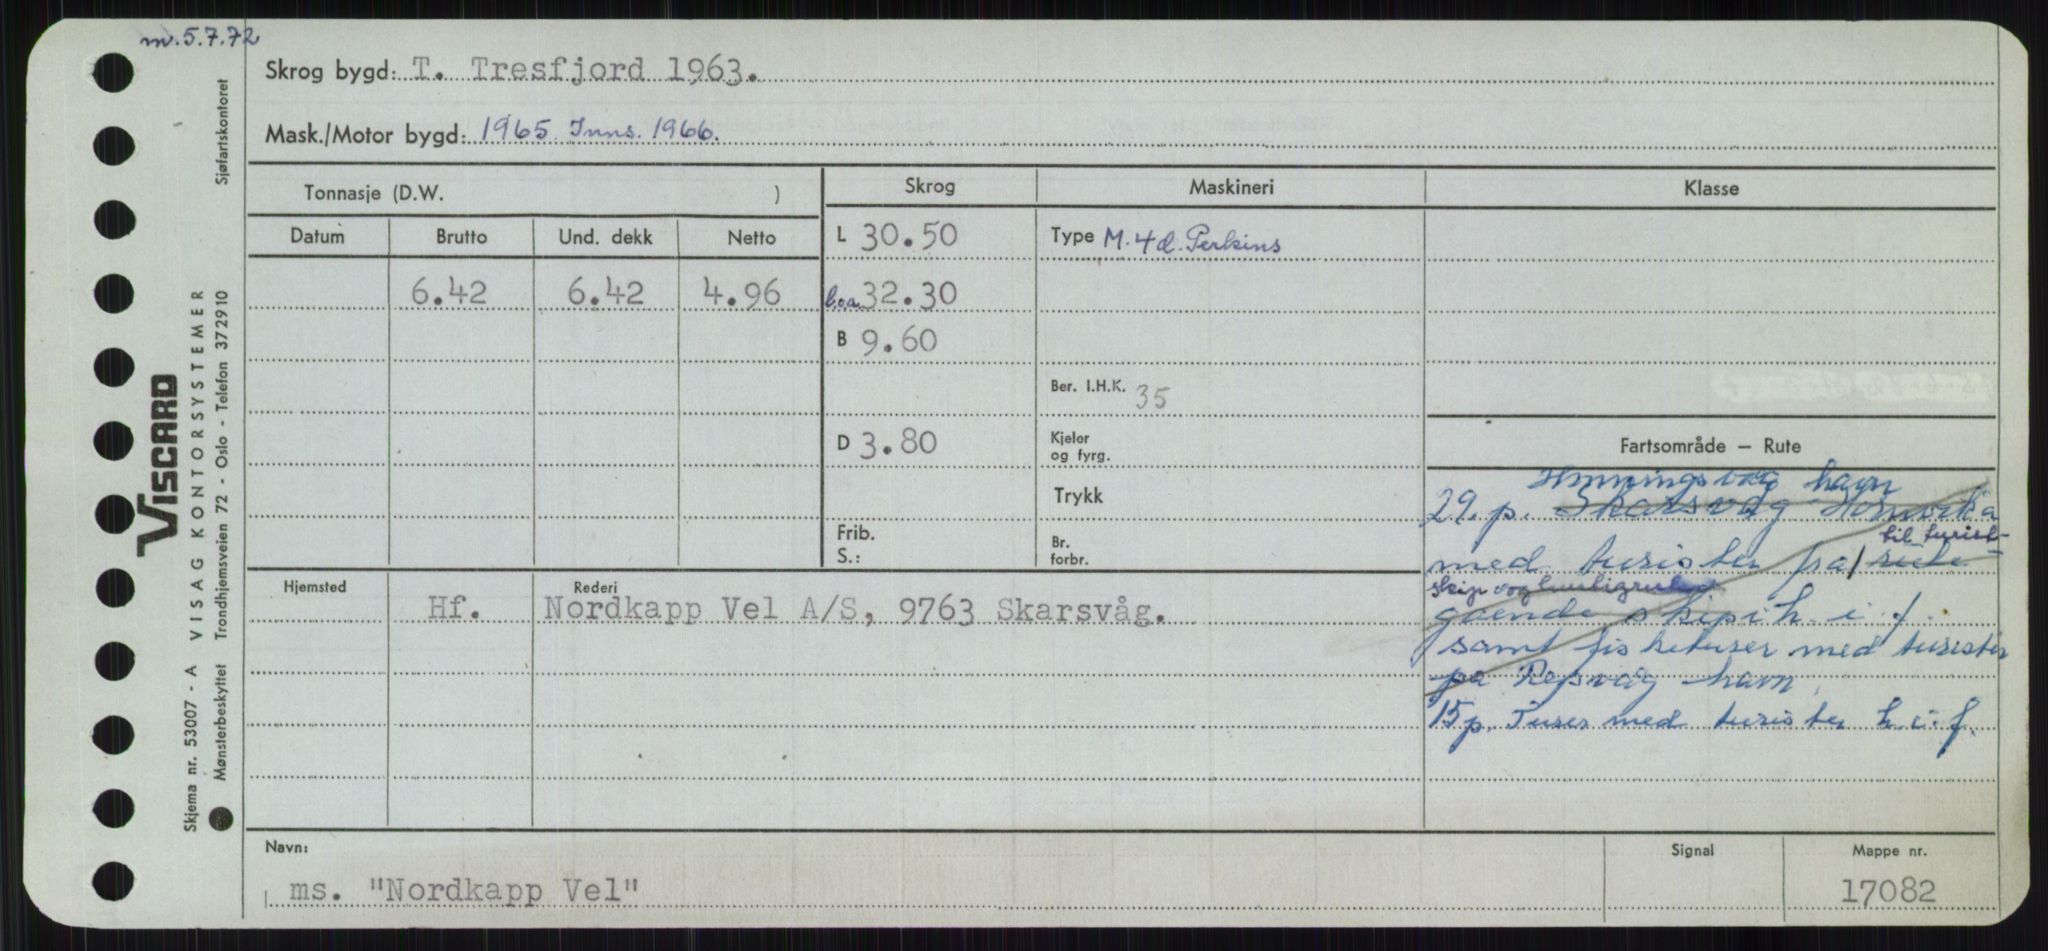 m. 5.7.72
Skrog bygd: T. Tresfjord 1963.
Mask./Motor bygd: 1965 Inns. 1966.
Sjøfartskontoret
Tonnasje (D.W. )
Skrog
Maskineri
Klasse
Datum Brutto Und. dekk Netto
L 30.50
Type M. 4 d. Perkins
6.42 6.42 4.96
l.o.a. 32.30
B 9.60
Ber. I.H.K. 35
D 3.80
Kjeler og fyrg.
Fartsområde – Rute
Trykk
Honningsvåg havn
29. p. Skarsvåg Hornvika
Frib.
S.:
Br. forbr.
til turist-
med turister fra rute
skip og
gående skip i h. i f.
samt fisketurer med turister
på Repvåg havn.
15 p. Turer med turister h. i. f.
Hjemsted Rederi
Hf. Nordkapp Vel A/S, 9763 Skarsvåg.
Navn: Signal Mappe nr.
ms. "Nordkapp Vel" 17082
VISCARD
VISAG KONTORSYSTEMER
Skjema nr. 53007 - A
Mønsterbeskyttet Trondhjemsveien 72 - Oslo - Telefon 372910